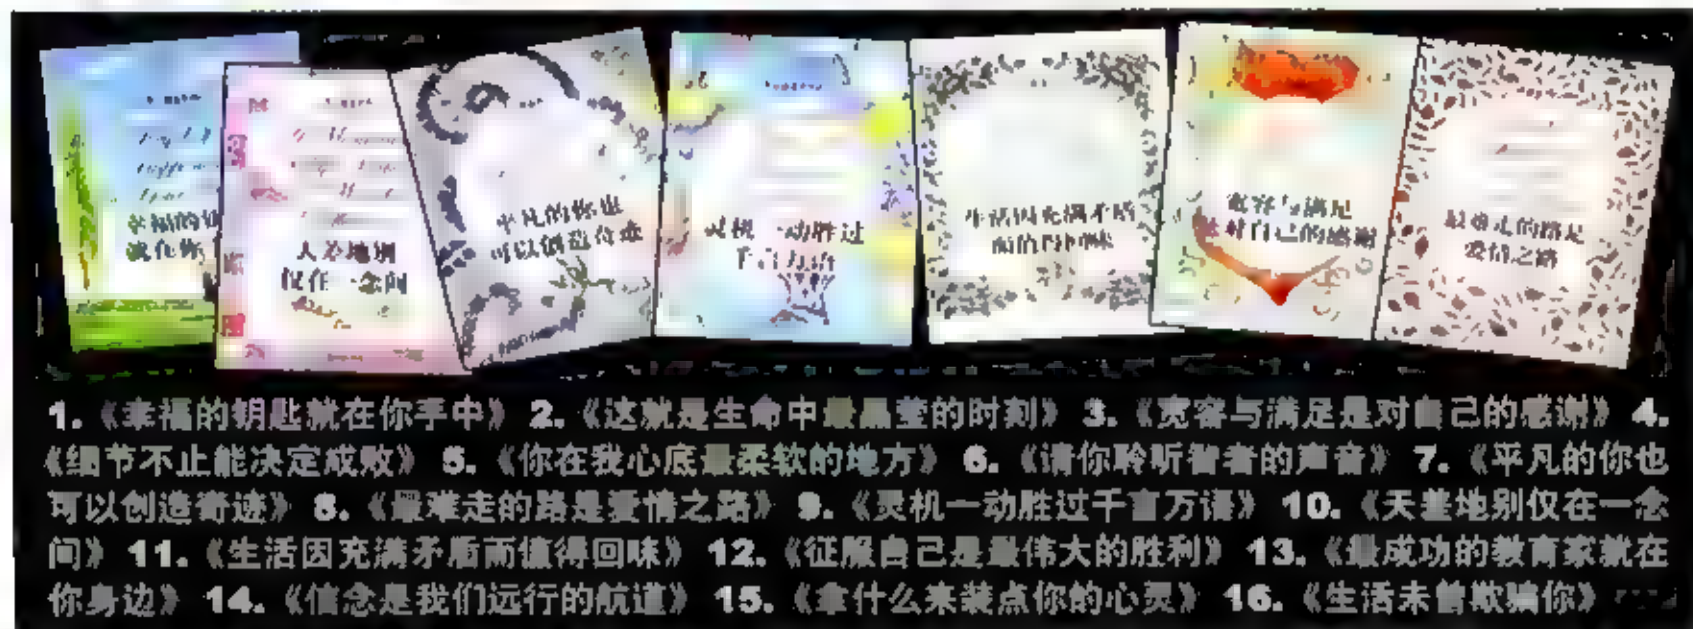 幸福的
就在你
天差地别
仅在一念间
平凡的你也
可以创造奇迹
灵机一动胜过
千言万语
生活因充满矛盾
而值得回味
宽容与满足
是对自己的感谢
最难走的路是
爱情之路
1.《幸福的钥匙就在你手中》 2.《这就是生命中最晶莹的时刻》 3.《宽容与满足是对自己的感谢》 4.
《细节不止能决定成败》 5.《你在我心底最柔软的地方》 6.《请你聆听智者的声音》 7.《平凡的你也
可以创造奇迹》 8.《最难走的路是爱情之路》 9.《灵机一动胜过千言万语》 10.《天差地别仅在一念
间》 11.《生活因充满矛盾而值得回味》 12.《征服自己是最伟大的胜利》 13.《最成功的教育家就在
你身边》 14.《信念是我们远行的航道》 15.《拿什么来装点你的心灵》 16.《生活未曾欺骗你》……